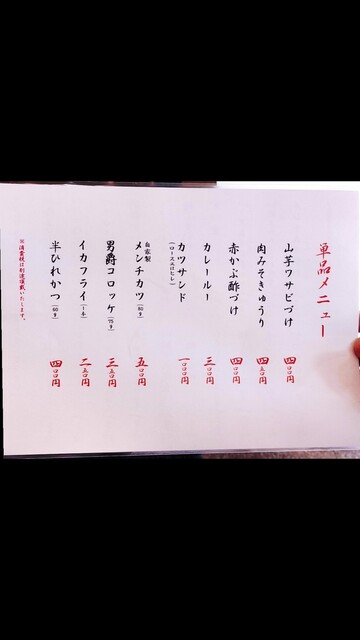 単品メニュー
山芋ワサビづけ 四〇〇円
肉みそきゅうり 四五〇円
赤かぶ酢づけ 四〇〇円
カレールー 三〇〇円
カツサンド 一〇〇〇円
(ロース又はヒレ)
自家製
メンチカツ(80g) 五〇〇円
男爵コロッケ(75g) 三五〇円
イカフライ(1本) 二五〇円
半ひれかつ(60g) 四〇〇円
※消費税は別途頂戴いたします。